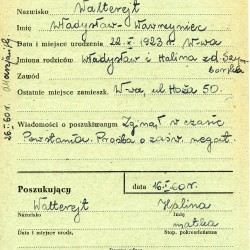 Nazwisko Walterejt
Imię Władysław-Wawrzyniec
Data i miejsce urodzenia 22.X.1923 W-wa
Imiona rodziców Władysław i Halina z d. Szym-
borska
Zawód
Ostatnie miejsce zamieszk. W-wa, ul Hoża 50.
Wiadomości o poszukiwanym Zginął w czasie
Powstania. Prośba o zaśw. negat.
26.I.60r.
Poszukujący
data 16.I.60r.
Walterejt Halina
Nazwisko Imię
matka
Data i miejsce urodz. Stop. pokrewieństwa